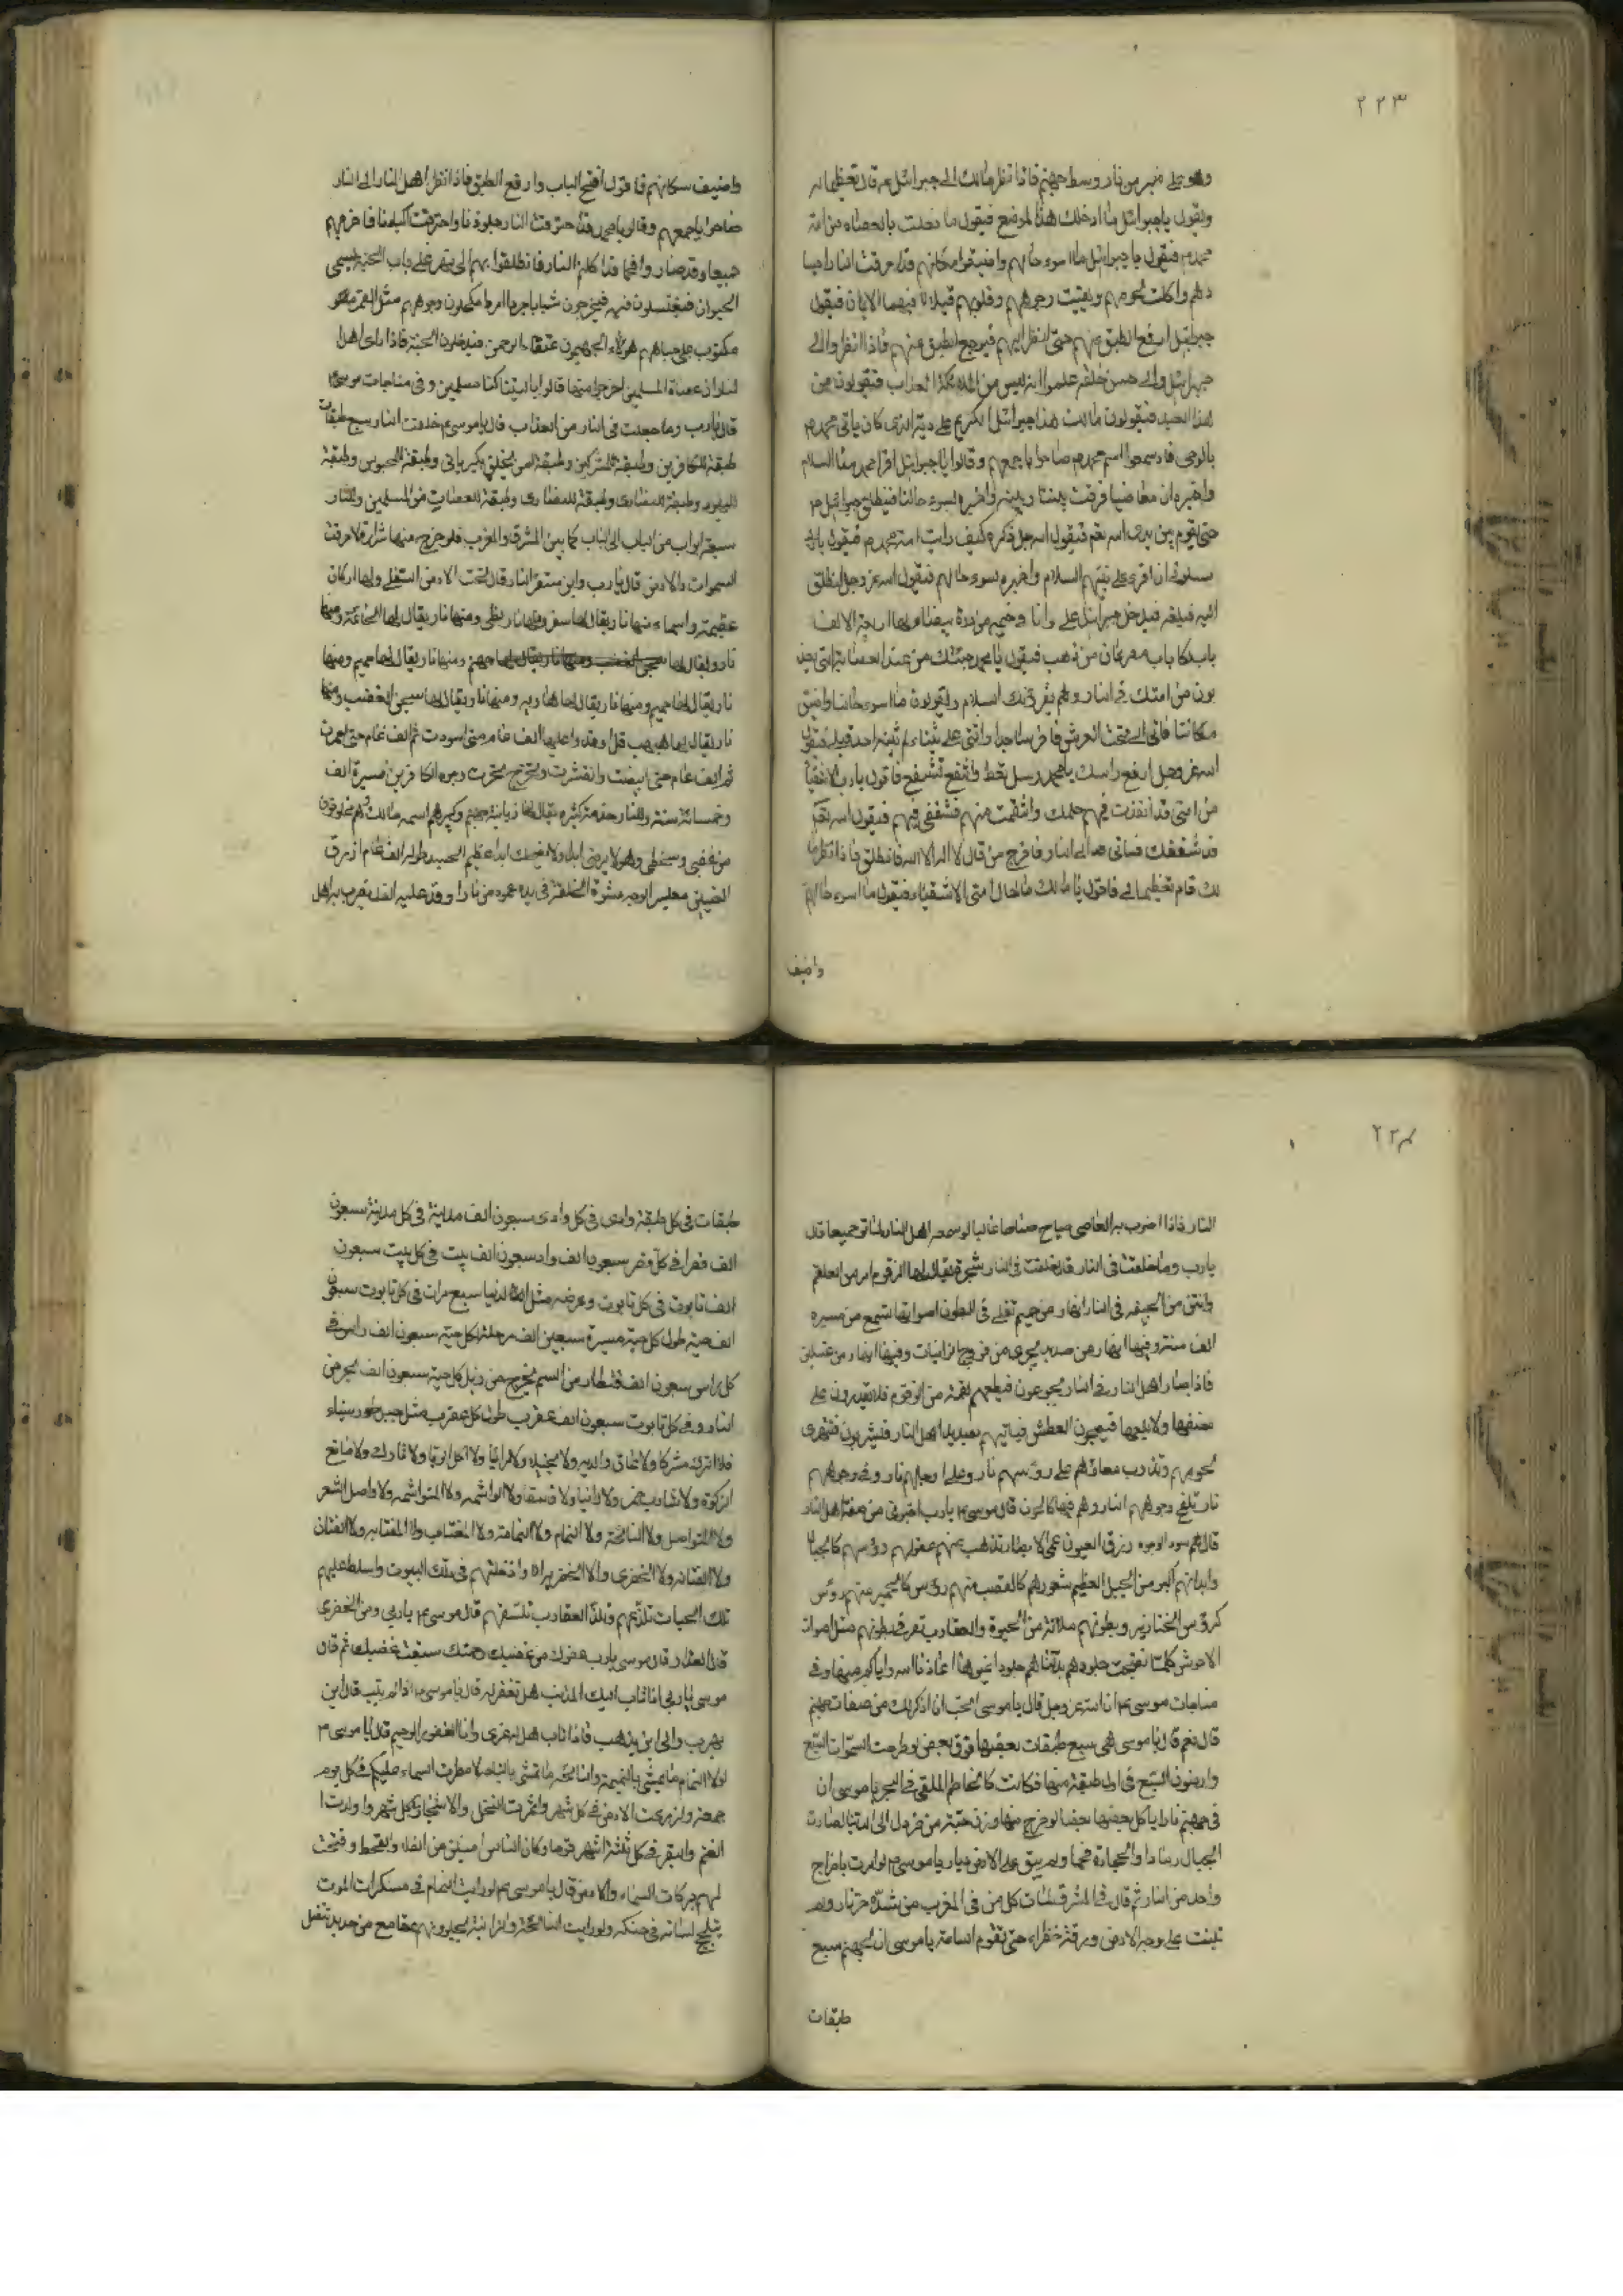 ٢٢٣
وهو على منبر من نار وسط جهنم فاذا نظر مالك الى جبرائيل م قال تعظيما له
ويقول يا جبرائيل ما ادخلك هذا الموضع فيقول ما فعلت بالعصاة من امة
محمد م فيقول يا جبرائيل ما اسوء حالهم واضيق مكانهم قد احرقت النار اجسا
دهم واكلت لحومهم وبقيت وجوههم وقلوبهم فيها الايمان فيقول
جبرائيل ارفع الطبق عنهم حتى انظر اليهم فيرفع الطبق عنهم فاذا انظروا الى
جبرائيل والى حسن خلقه علموا انه ليس من ملائكة العذاب فيقولون من
هذا العبد فيقولون مالك هذا جبرائيل الكريم على ربه الذى كان ياتى محمد م
بالوحى فاذ سمعوا اسم محمد م صاحوا باجمعهم وقالوا يا جبرائيل اقرا محمد منا السلام
واخبره ان معاصينا فرقت بيننا وبينه واخبره بسوء حالنا فينطلق جبرائيل م
حتى يقوم بين يدى الله تعم فيقول الله جل ذكره كيف رايت امة محمد م فيقول يارب
سلونى ان اقرى على نبيهم السلام واخبره بسوء حالهم فيقول الله عز وجل انطلق
اليه فيدخل جبرائيل على وانا فى خيمه من درة بيضاء لها اربعة الاف
باب لكل باب مصرعان من ذهب فيقول يا محمد جئتك من عند العصابة التى يعذ
بون من امتك فى النار وهم يقرئنك السلام ويقولون ما اسوء حالنا واضيق
مكاننا فاتى الى تحت العرش فاخر ساجدا واثنى على ثناء لم يثنه احد قبلى فيقول
الله عز وجل ارفع راسك يا محمد وسل تعط واشفع تشفع فاقول يارب الاشقيا
من امتى قد انفذت فيهم حكمك وانتقمت منهم فشفعنى فيهم فيقول الله تعم
قد شفعتك فساتى الى النار فاخرج من قال لا اله الا الله فانطلق فاذا نظر ما
لك قام تعظيما لى فاقول يا مالك ما حال امتى الاشقياء فيقول ما اسوء حالهم
واضيق
واضيق مكانهم فاقول افتح الباب وارفع الطبق فاذا نظر اهل النار الى النار
صاحوا باجمعهم وقالو يا محمد قد احترقت النار جلودنا واحترقت اكبادنا فاخرجهم
جميعا وقد صاروا فحما قد اكلهم النار فانطلقوا بهم الى نهر على باب الجنة يسمى
الحيوان فيغتسلون فيه فيخرجون شبابا جردا مردا مكحلون وجوههم مثل القمر
مكتوب على جباههم هؤلاء الجهنميون عتقاء الرحمن فيدخلون الجنة فاذا راى اهل
النار ان عصاة المسلمين اخرجوا منها قالوا ياليتنا كنا مسلمين وفى مناجات موسى م
قال يارب وما جعلت فى النار من العذاب قال يا موسى م خلقت النار سبع طبقات
طبقة للكافرين وطبقة للمشركين وطبقة لمن وطبقة للمجوس وطبقة
لليهود وطبقة للنصارى وطبقة للعصات من المسلمين وللنار
سبعة ابواب من الباب الى الباب كما بين المشرق والمغرب فلو خرج منها شرارة لاحرقت
السموات والارض قال يارب واين مستقر النار قال تحت الارض السفلى ولها اركان
عظيمة واسماء منها نار يقال لها سقر ومنها نار لظى ومنها نار يقال لها
نار يقال لها جهنم ومنها نار يقال لها جحيم ومنها
نار يقال لها حميم ومنها نار يقال لها هاويه ومنها نار يقال لها سجين الغضب ومنها
نار يقال لها هبهب قد اوقدوا عليها الف عام حتى اسودت ثم الف عام حتى احمرت
ثم الف عام حتى ابيضت وانتشرت وجوه الكافرين مسيرة الف
وخمسمائة سنة وللنار خدمة كثيره يقال لها زبانية جهنم وكبيرهم اسمه مالك وهم مخلوقون
من غضبى وسخطى وهو لا يرضى ابدا ولا يضحك ابدا عظيم الجسد طوله الف عام ازرق
العينين الوجه مشوه الخلقة فى يده عمود من نار اوقد عليه الف يضرب به اهل
٢٢٤
النار فاذا اضرب به العاصى صياح صاحا عاليا لو سمعه اهل النار لماتو جميعا قال
يارب وما خلقت فى النار قال خلقت فى النار شجرة يقال لها الزقوم امر من العلقم
وانتن من الجيفه فى النار انهار من حميم تغلى فى البطون اصواتها تسمع من مسيره
الف سنة وفيها انهار من صديد يجرى من فروج الزانيات وفيها انهار من غسلين
فاذا صار اهل النار فى النار يجوعون فيطعمهم لقمة من الزقوم فلا يقدرون على
مضغها ولا بلعها فيصيبون العطش فياتيهم بصديد اهل النار فيشربون فتهرى
لحومهم وتذوب على رؤسهم نار وعلى ارجلهم نار وفى وجوههم
نار تلفح وجوههم النار وهم فيها كالحون قال موسى م يارب اخبرنى من صفة اهل النار
قال هم سود الوجوه زرق العيون عمى الابصار تذهب عنهم عقولهم رؤسهم كالجبال
وابدانهم اكبر من الجبل العظيم شعورهم كالقصب منهم رؤس كالحمير منهم رؤس
كرؤس الخنازير وبطونهم ملائة من الحيوة والعقارب تعرف بطونهم مثل اصوات
الاحوش كلما نضجت جلودهم بدلناهم جلودا غيرها اعاذنا الله واياكم منها وفى
مناجات موسى م ان الله عز وجل قال يا موسى اتحب ان اذكر لك من صفات جهنم
قال نعم قال يا موسى هى سبع طبقات بعضها فوق بعض لو طرحت السموات السبع
وارضون السبع فى اول طبقة منها فكانت كالخاتم الملقى فى البحر يا موسى ان
فى جهنم نارا ياكل بعضها بعضا لو خرج منها وزن حبة من خردل الى الدنيا لصارت
الجبال رمادا والحجارة فحما ولم يبق على الارض ديار يا موسى م لو امرت باخراج
واحد من النار ثم قال فى المشرق لمات كل من فى المغرب من شدة حر نار ولم
تلبث على وجه الارض ورقة خضراء حتى تقوم الساعة يا موسى ان لجهنم سبع
طبقات
طبقات فى كل طبقة وادى فى كل وادى سبعون الف مدينة فى كل مدينة سبعون
الف قصرا فى كل قصر سبعون الف واد سبعون الف بيت فى كل بيت سبعون
الف تابوت فى كل تابوت وعرضه مثل الدنيا سبع مرات فى كل تابوت سبعون
الف حية طول كل حية مسيرة سبعين الف مرحلة لكل حية سبعون الف راس فى
كل راس سبعون الف قنطار من السم يخرج من ذيل كل حية سبعون الف بحر من
النار وفى كل تابوت سبعون الف عقرب طول كل عقرب مثل جبل طور سيناء
فلا اترك مشركا ولا عاق والديه ولا ولا مرائيا ولا اكل الربا ولا ولا مانع
الزكوة ولا شارب خمر ولا زانيا ولا فاسقا ولا الواشمه ولا المتواشمه ولا واصل الشعر
ولا المتواصل ولا النائحة ولا النمام ولا النمامة ولا المغتاب ولا المغتابه ولا الفتان
ولا الفتانه ولا الخفرى والا الخفريه الا وادخلتهم فى تلك البيوت واسلط عليهم
تلك الحيات تلدغهم وتلك العقارب تلسعهم قال موسى م يا ربى ومن الخفرى
قال الغدار قال موسى يارب عفوك من غضبك رحمتك سبقت غضبك ثم قال
موسى يا ربى اذا تاب اليك المذنب هل تغفر له قال يا موسى م اذا لم يتب قال اين
يهرب والى اين يذهب فاذا تاب هل له غيرى وانا الغفور الرحيم قال يا موسى م
لولا النمام ما يمشى بالنميمة والنائحه ما تمشى بالنياحه لامطرت السماء عليكم فى كل يوم
جمعه ولزرعت الارض فى كل شهر واثمرت النخل والاشجار فى كل شهر واولدت ا
الغنم والبقر فى كل ثلثة اشهر وكان الناس امنين من الغلاء والقحط وفتحت
لهم بركات السماء والارض قال يا موسى م لو رايت النمام فى سكرات الموت
لسانه فى حنكه ولو رايت النائحة والزانية يجلدونهم بمقامع من حديد